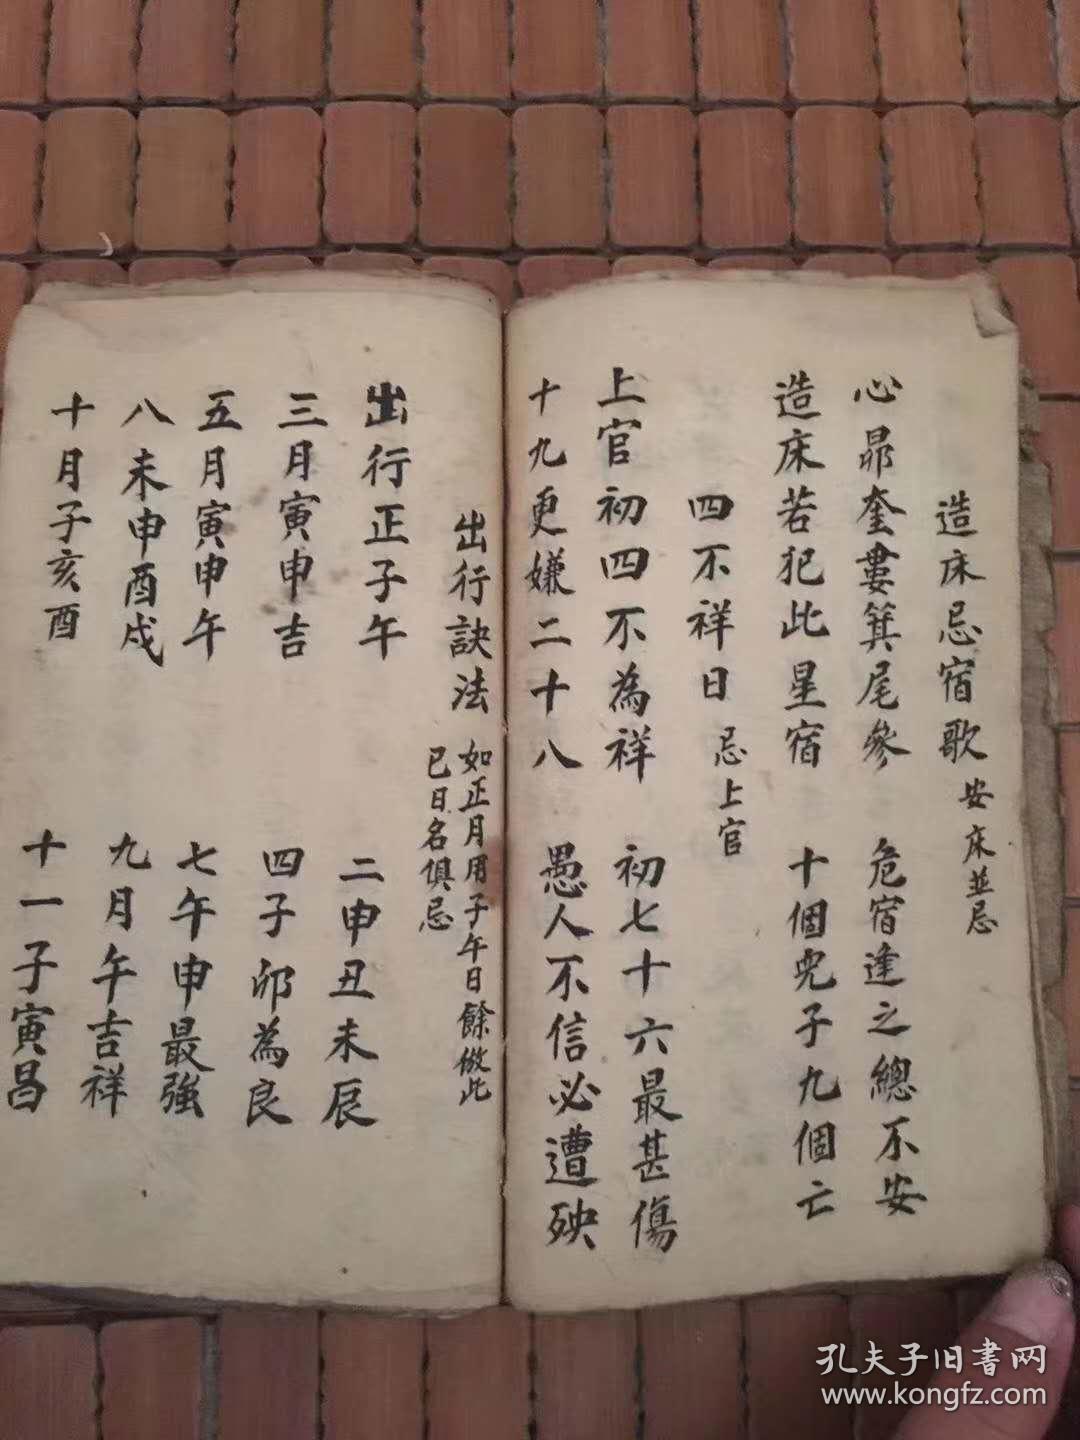 造床忌宿歌 安床並忌
心昴奎婁箕尾參 危宿逢之總不安
造床若犯此星宿 十個兒子九個亡
四不祥日 忌上官
上官初四不為祥 初七十六最甚傷
十九更嫌二十八 愚人不信必遭殃
出行訣法 如正月用子午日餘倣此
已日名俱忌
出行正子午 二申丑未辰
三月寅申吉 四子卯為良
五月寅申午 七午申最強
八未申酉戍 九月午吉祥
十月子亥酉 十一子寅昌
孔夫子旧書网
www.kongfz.com